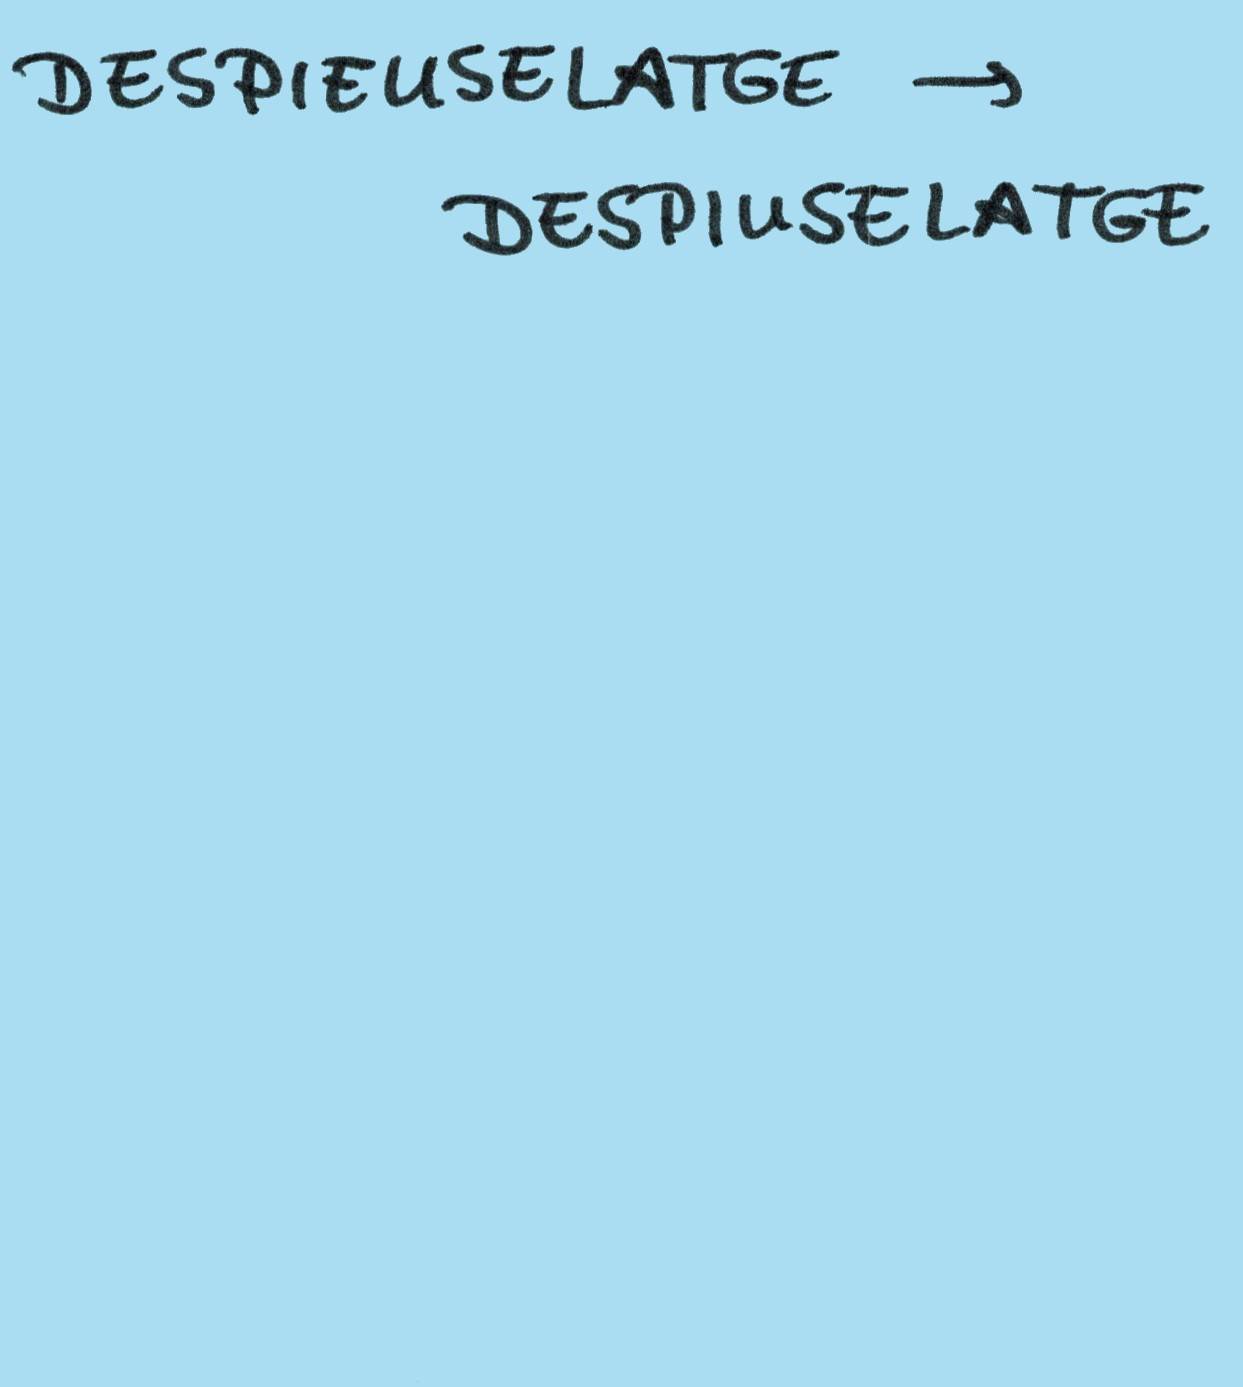 DESPIEUSELATGE →
DESPIUSELATGE